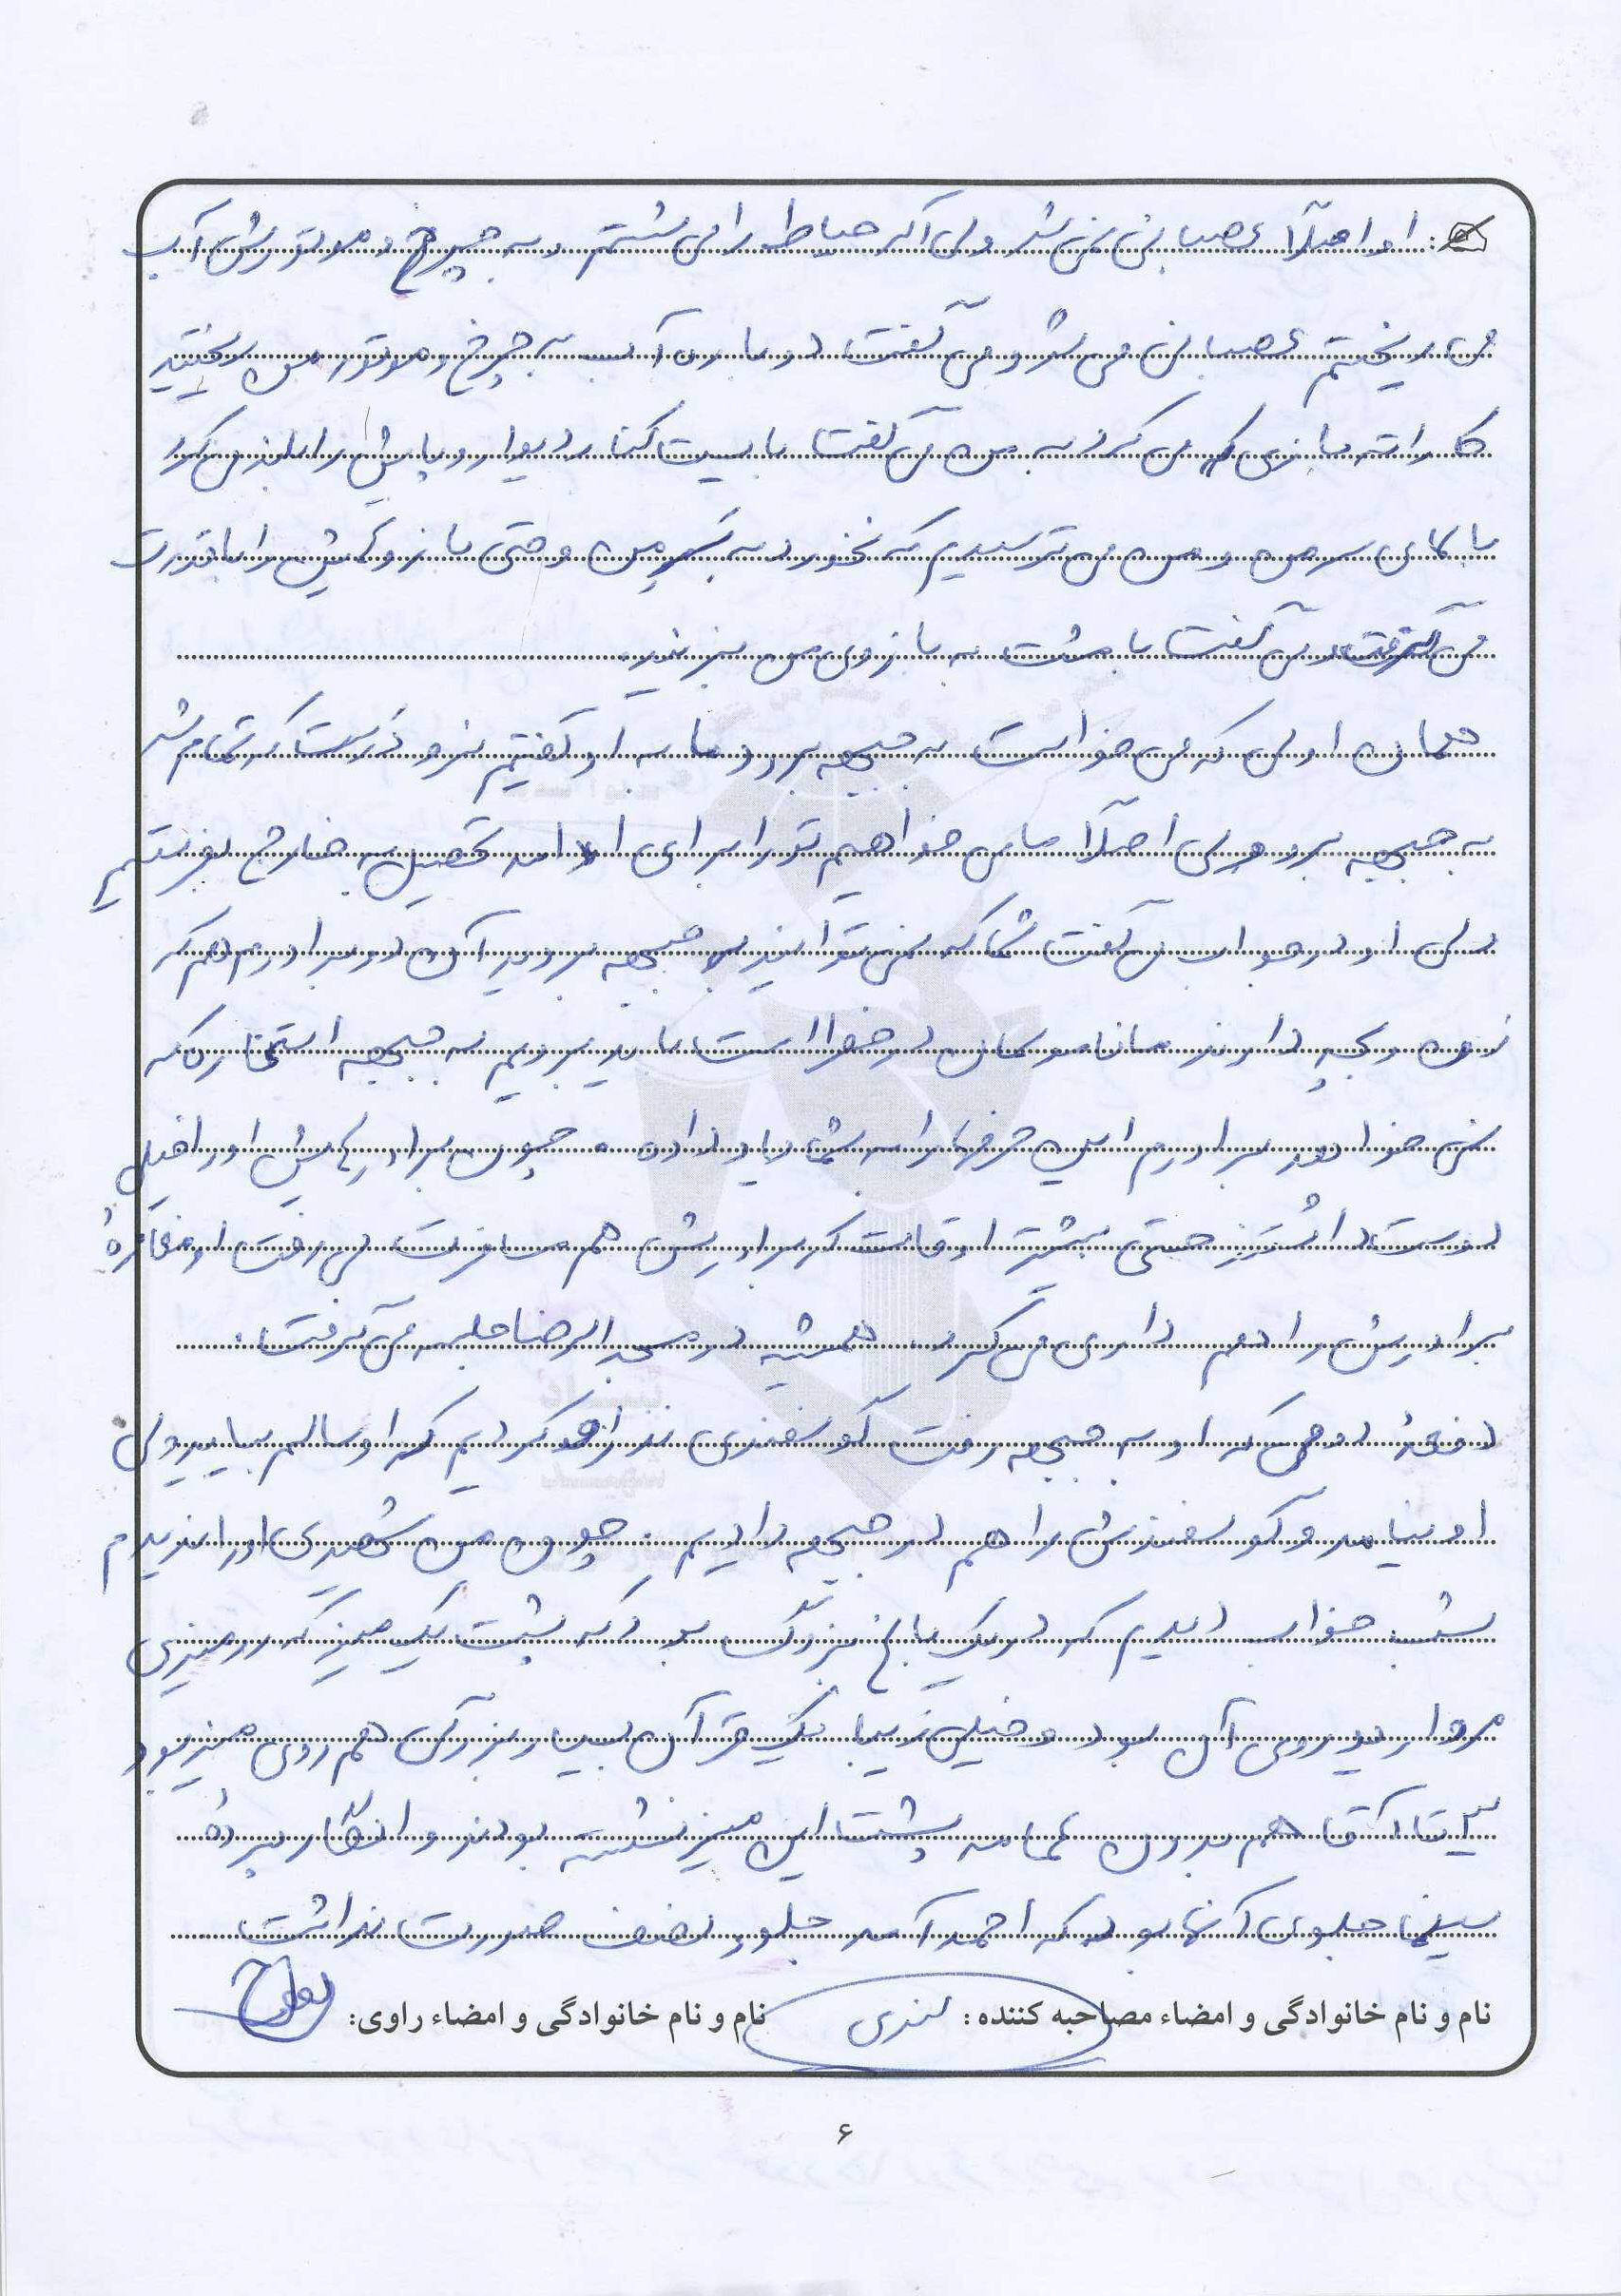 او اصلاً عصبانی نمی شد ولی اگر حیاط را می شستم و به چرخ و موتورش آب
می ریختم عصبانی می شد و می گفت دوباره آب به چرخ و موتور من ریختید
کاراته بازی که می کرد به من می گفت بایست کنار دیوار و پایش را بلند می کرد
بالای سر من و من می ترسیدم که نخورد به سر من و حتی بازوهایش را با قدرت
می گرفت و می گفت با مشت به بازوی من بزنید.
همان اولی که می خواست به جبهه برود ما به او گفتیم نرو درست که تمام شد
به جبهه برو ولی اصلاً ما می خواهیم تو را برای ادامه تحصیل به خارج بفرستیم
ولی او در جواب می گفت شما که نمی توانید به جبهه بروید آن دو برادرم هم که
زن و بچه دارند ما ناموسمان در خطر است باید برویم به جبهه استخاره که
نمی خواهد برادرم این حرفها را به شما یاد داده. چون برادرهایش او را خیلی
دوست داشتند حتی بیشتر اوقات که برادرش هم مسافرت می رفت او مغازهٔ
برادرش را هم داری می کرد. همیشه در مسجد الرضا جلسه می گرفت.
دفعهٔ دومی که او به جبهه رفت گوسفندی نذر او کردیم که او سالم بیاید ولی
او نیامد و گوسفندش را هم در جبهه دادیم. چون من شهیدی او را ندیدم
شب خواب دیدم که در یک باغ بزرگ بود که پشت یک میز که رومیزی
مروارید روی آن بود و خیلی زیبا یک قرآن بسیار بزرگی هم روی میز بود
۳ تا آقا هم بدون عمامه پشت این میز نشسته بودند و انگار پردهٔ
سینما جلوی آنها بود که احمد آمد جلو، نصف صورت نداشت
نام و نام خانوادگی و امضاء مصاحبه کننده: نام و نام خانوادگی و امضاء راوی:
۶